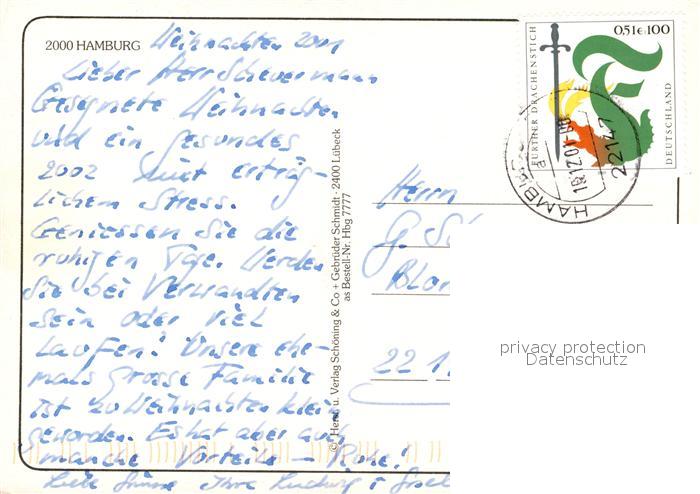 2000 HAMBURG Weihnachten 2001
Lieber Herr Scheuermann
Gesegnete Weihnachten
und ein gesundes
2002 mit erträg-
lichen Stress.
Geniessen Sie die
ruhigen Tage. Werden
Sie bei Verwandten
sein oder viel
Laufen? Unsere ehe-
mals grosse Familie
ist zu Weihnachten klein
geworden. Es hat aber auch
manche Vorteile – Ruhe!
Liebe Grüsse Ihre
© Herst. u. Verlag Schöning & Co + Gebrüder Schmidt · 2400 Lübeck
as Bestell-Nr. Hbg 7777
FURTHER DRACHENSTICH
0,51 € 100
DEUTSCHLAND
HAMBURG
18.12.01
22147
Herrn
G.
22 1
privacy protection
Datenschutz